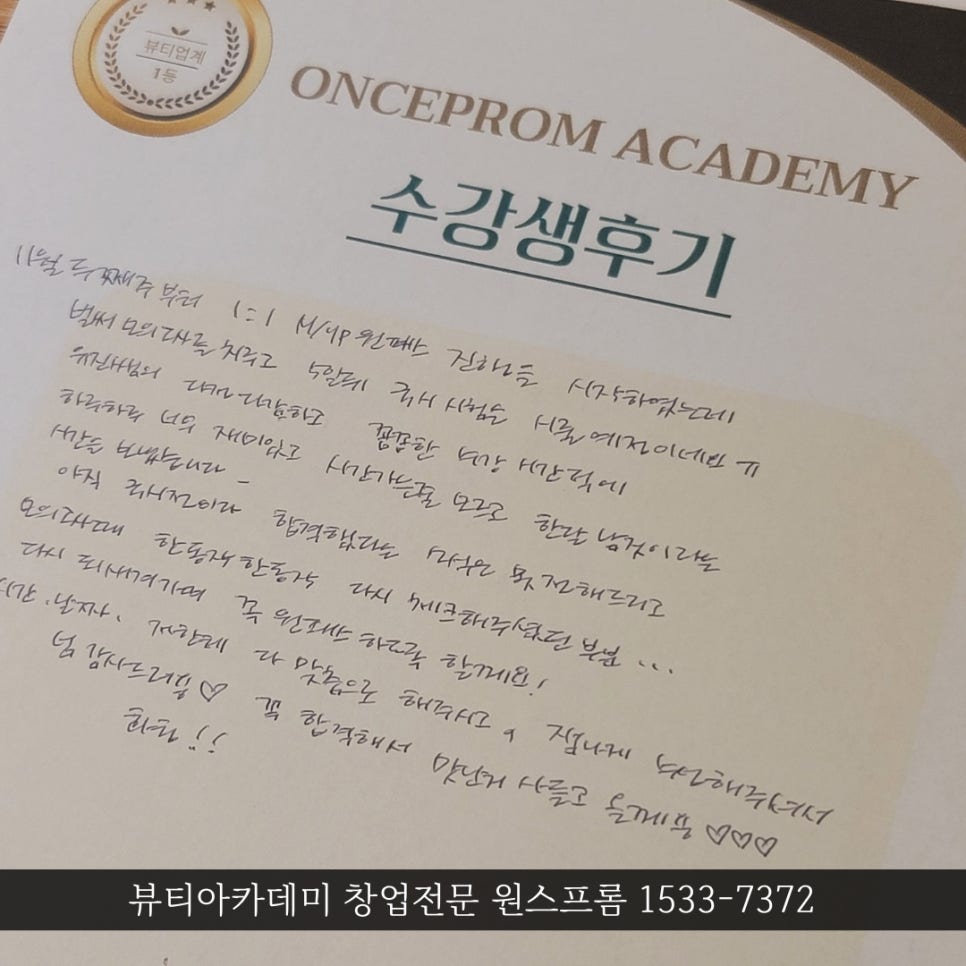 뷰티업계
1등
ONCEPROM ACADEMY
수강생후기
11월 두째주부터 1:1 M/up 원패스 진행을 시작하였는데
벌써 모의고사를 치루고 5일뒤 국시 시험을 치룰 예정이네요 ㅠ
다정다감하고 꼼꼼한 시간덕에
하루하루 너무 재미있고 시간가는줄 모르고 한달 남짓이라는
시간을 보냈습니다 -
아직 국시전이라 합격했다는 소식은 못 전해드리고
모의고사때 한동작 한동작 다시 체크해주셨던 부분 ...
다시 되새겨가며 꼭 원패스 하도록 할게요!
시간, 날짜, 저한테 다 맞춤으로 해주시고, 신경써주셔서
넘 감사드려용 ♡ 꼭 합격해서 맛난거 사들고 올게용 ♡♡♡
화팅!!
뷰티아카데미 창업전문 원스프롬 1533-7372